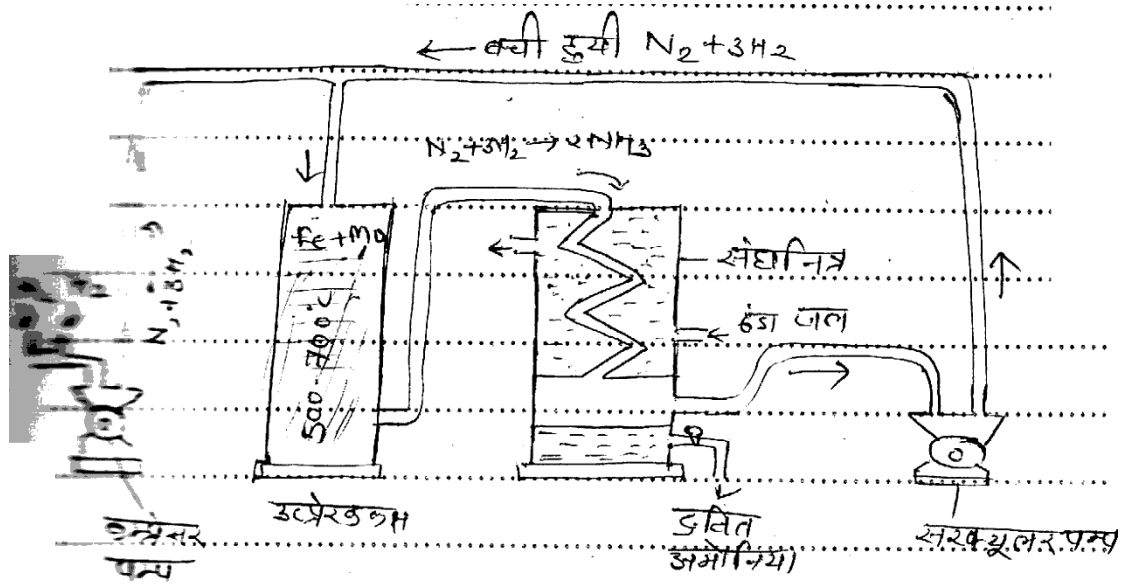 बची हुयी N₂+3H₂
N₂+3H₂→2NH₃
Fe+Mo
500-700°C
N₂+3H₂
संघनित्र
ठंडा जल
उत्प्रेरक कक्ष
द्रवित
अमोनिया
सरक्यूलर पम्प
पम्प